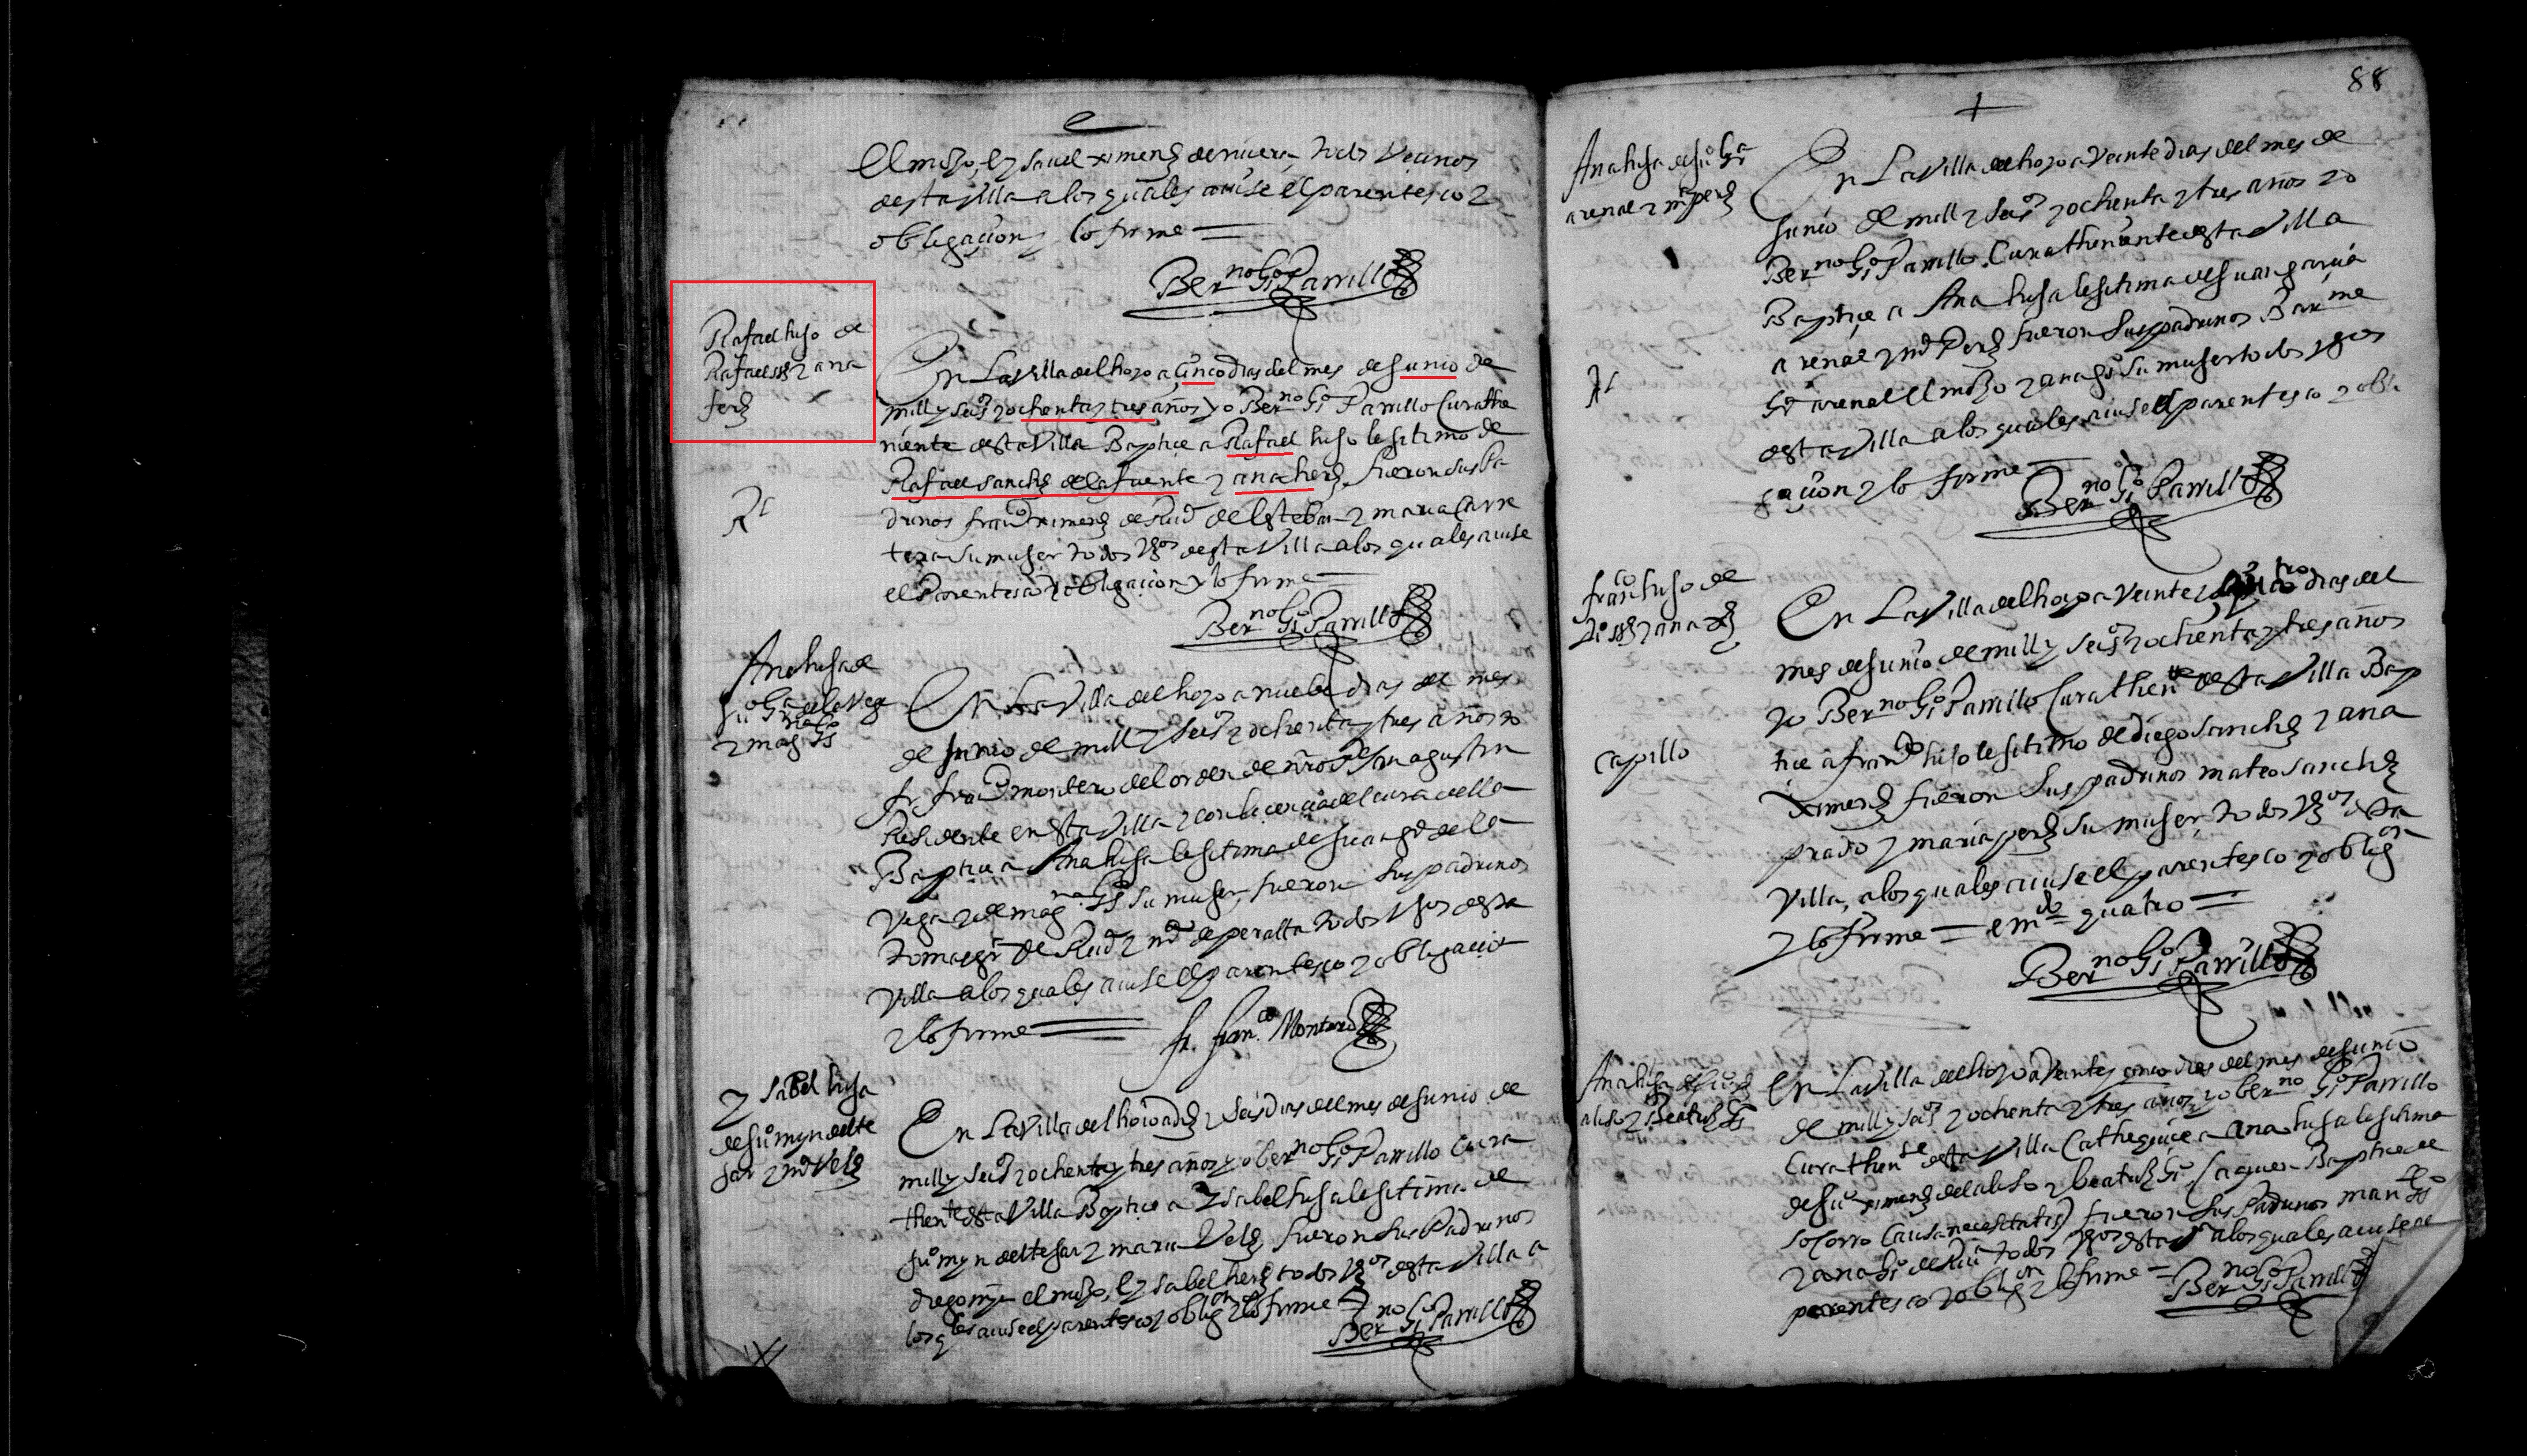 el mozo, e ysauel ximenz de riuera, todos Vecinos
desta villa a los quales auise el parentesco y
obligaçion y lo firme
Ber.no Gō Parrillo
Rafael hijo de
Rafael ssz y ana
ferz
En La Villa del hoyo a çinco dias del mes de junio de
mill y seisº y ochenta y tres años yo Ber.no Gō Parrillo Cura the
niente desta Villa Baptice a Rafael hijo lesitimo de
Rafael sanchz de la fuente y ana herz fueron sus Pa
drinos franco ximenz de Ruiº del Esteban y maria Carre
tera su muger todos vzos desta Villa a los quales auise
el Parentesco y obligaçion y lo firme
Ber.no Gō Parrillo
Ana hija de
juº Gra de la Vega
y magna Gs
En La Villa del hoyo a nuebe dias del mes
de junio de mill y seisº y ochenta y tres años yo
fr franco montero del orden de nro Pe san agustin
Residente en esta Villa y con liçençia del cura della
Baptice a Ana hija lesitima de juan gra de la
Vega y de magna Gs su muger, fueron sus padrinos
tomas gr de Ruiº y mª de peralta todos vzos desta
Villa a los quales auise el parentesco y obligacion
y lo firme
fr. Fran.co Montero
Ysabel hija
de juº myn del te
jar y mª Velz
En La Villa del hoio a diez y seis dias del mes de junio de
mill y seisº y ochenta y tres años yo ber.no Gō Parrillo Cura
thente desta Villa Baptice a Ysabel hija lesitima de
juº myn del tejar y maria Velz fueron sus Padrinos
diego myn el mozo, e ysabel herz todos vzos desta Villa a
los qles auise el parentesco y obligon y lo firme
Ber.no Gō Parrillo
88
Ana hija de juº Gra
arenal y mª perz
En La Villa del hoyo a Veinte dias del mes de
junio de mill y seisº y ochenta y tres años yo
Ber.no Gō Parrillo Cura theniente desta Villa
Baptiçe a Ana hija lesitima de juan garçia
arenal y mª Perz fueron sus padrinos Barme
Gra arenal el mozo y ana gs su muger todos vzos
desta Villa a los quales auise el parentesco y obli
gaçion y lo firme
Ber.no Gō Parrillo
franco hijo de
Dº ssz y ana xz
Capillo
En La Villa del hoyo a Veinte y quatro dias del
mes de junio de mill y seisº y ochenta y tres años
yo Ber.no Gō Parrillo Cura thente desta Villa Bap
tice a franco hijo lesitimo de diego sanchz y ana
ximenz fueron sus padrinos mateo sanchz
prado y maria perz su muger, todos vzos desta
Villa, a los quales auise el parentesco y obligon
y lo firme = emdo quatro =
Ber.no Gō Parrillo
Ana hija de juº xz
aliso y Beatriz Gs
En La Villa del hoyo a Veinte y cinco dias del mes de junio
de mill y seisº y ochenta y tres años, yo ber.no Gō Parrillo
Cura thente desta Villa Cathequice a ana hija lesitima
de juº ximenz del aliso y beatriz Gs (a quien Baptice de
socorro Causa necesitatis) fueron sus Padrinos
y ana Gō de Ruiº todos vzos desta Vª a los quales auise el
parentesco y obligon y lo firme =
Ber.no Gō Parrillo